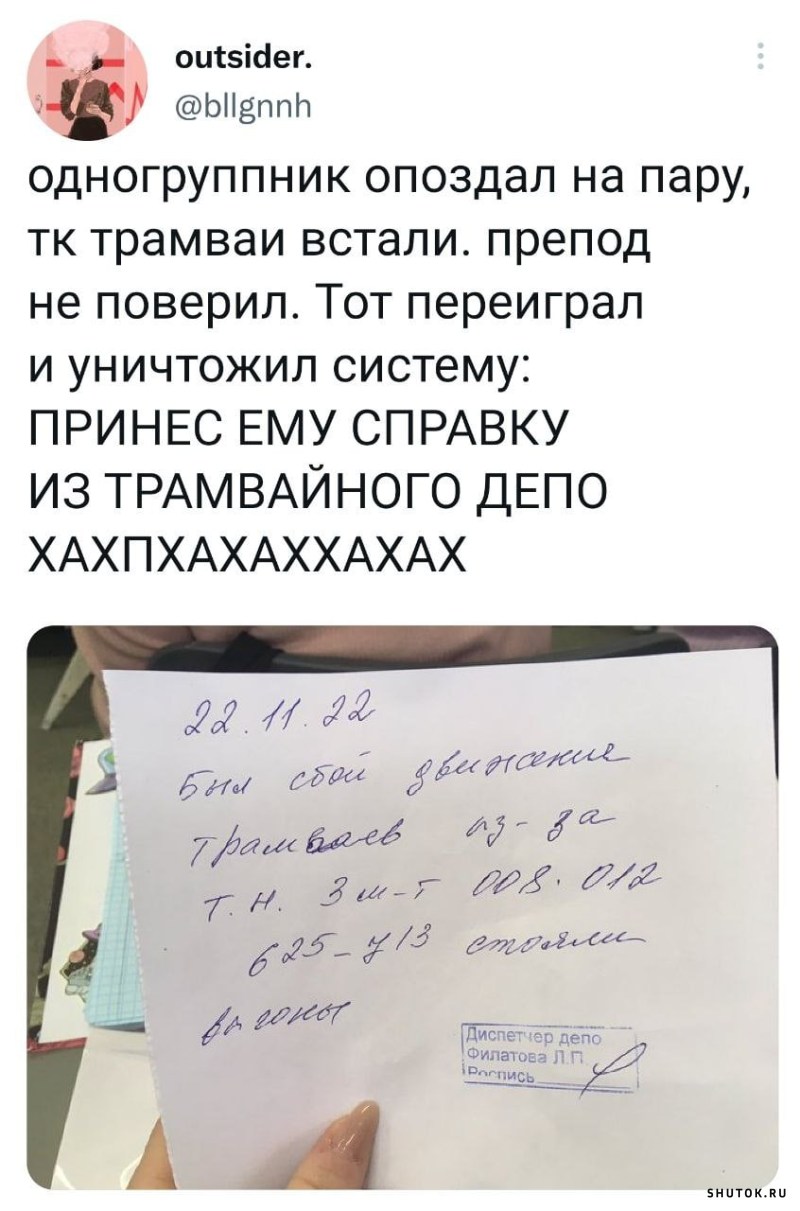 outsider.
@bllgnnh
одногруппник опоздал на пару,
тк трамваи встали. препод
не поверил. Тот переиграл
и уничтожил систему:
ПРИНЕС ЕМУ СПРАВКУ
ИЗ ТРАМВАЙНОГО ДЕПО
ХАХПХАХАХХАХАХ
22.11.22
Был сбой движения
трамваев из-за
т.н. 3 м-т 008. 012
625-713 стояли
вагоны
Диспетчер депо
Филатова Л.П.
Роспись
SHUTOK.RU